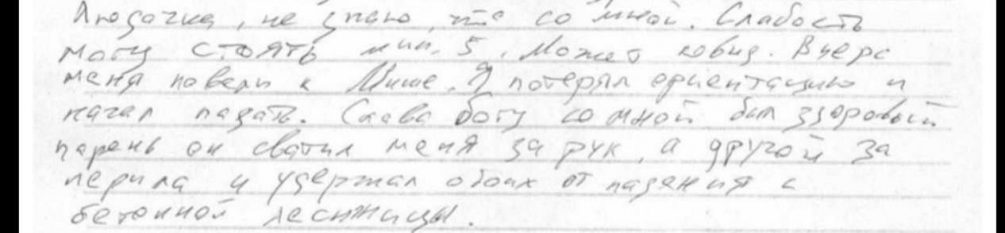 Людочка, не знаю, что со мной. Слабость
могу стоять мин. 5. Может ковид. Вчера
меня повели к Мише. Я потерял ориентацию и
начал падать. Слава богу со мной был здоровый
парень он сватил меня за рук, а другой за
перила и удержал обоих от падения с
бетонной лесницы.